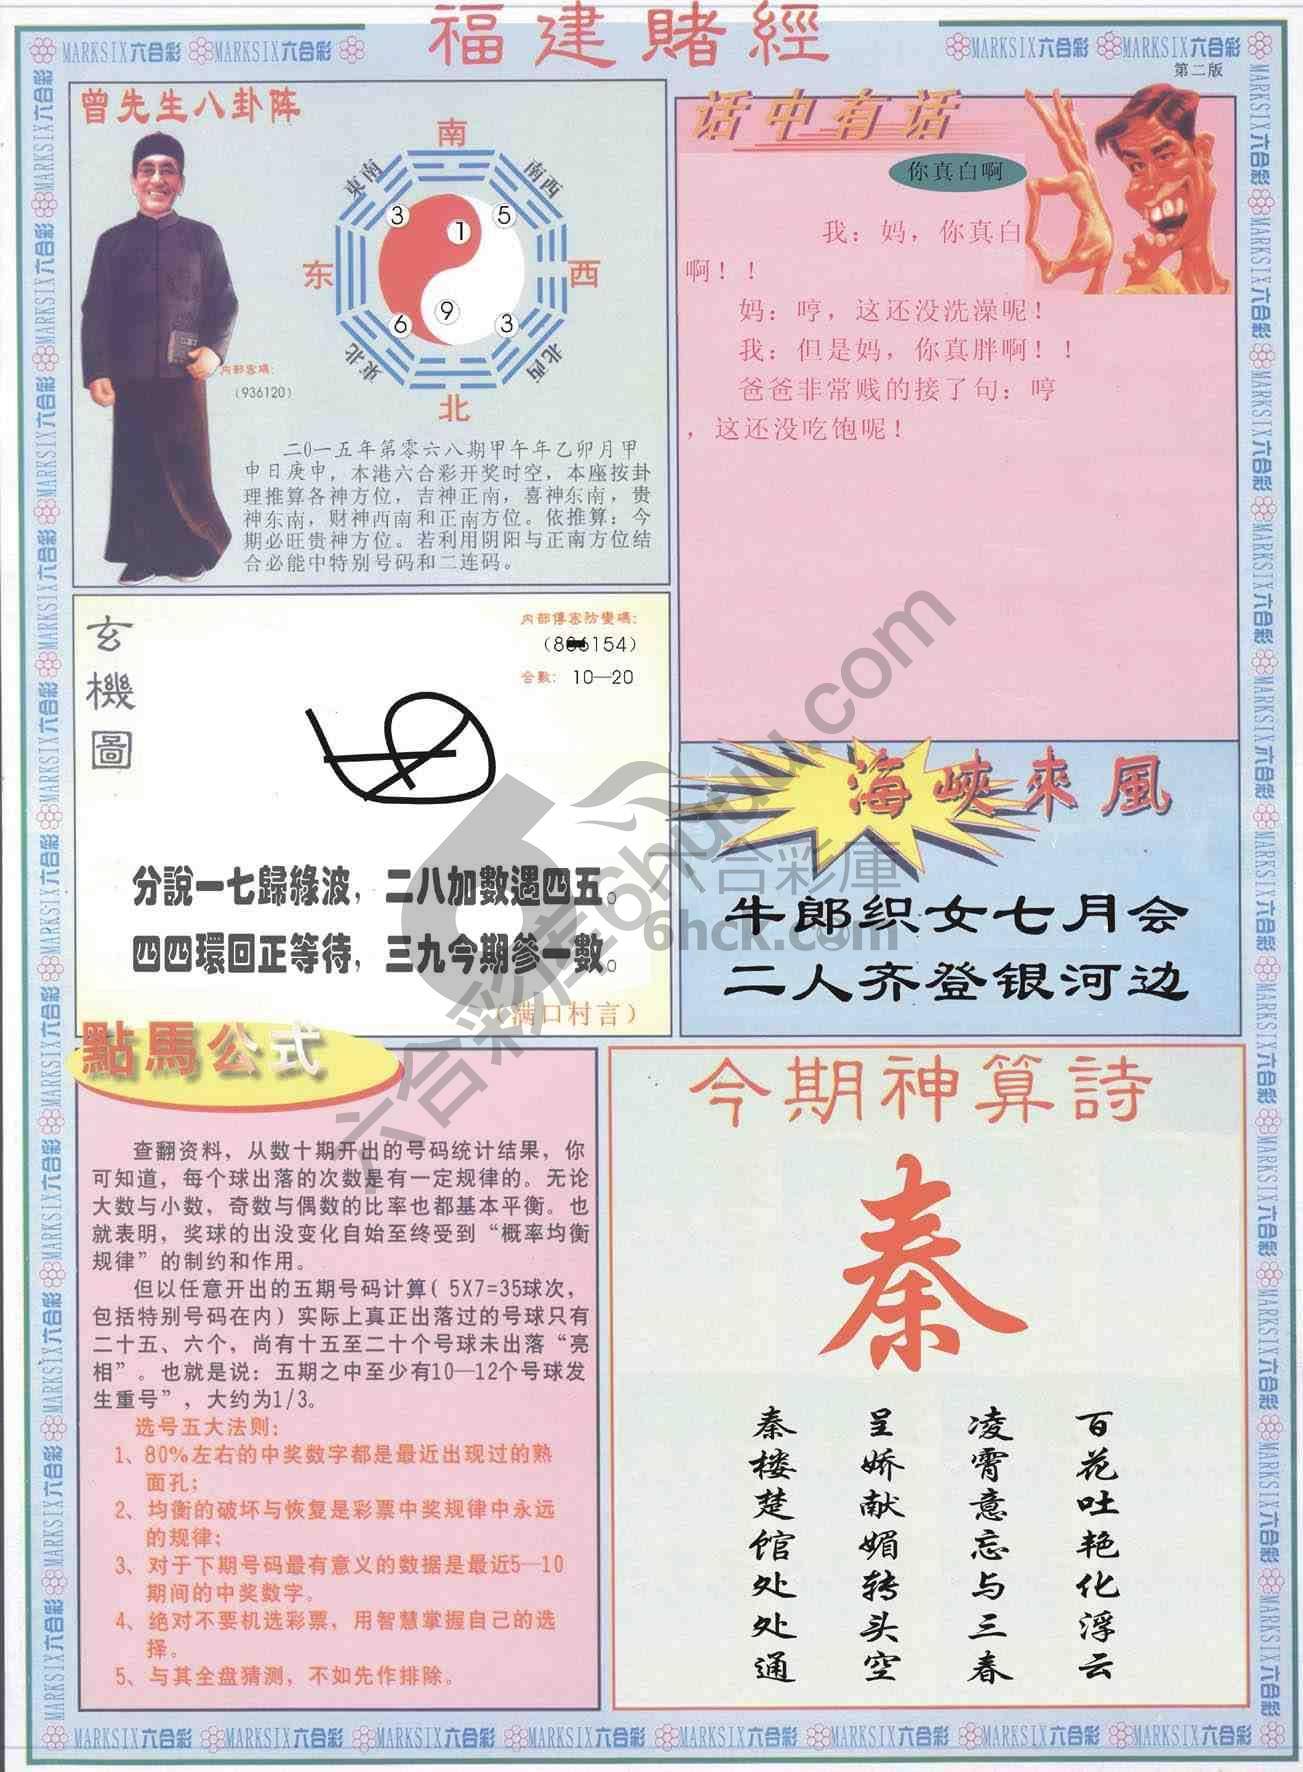 福建賭經
MARKSIX六合彩 MARKSIX六合彩
MARKSIX六合彩 MARKSIX六合彩
第二版
曾先生八卦阵
南
東南
南西
3
1
5
东
西
6
9
3
東北
北西
北
内部密碼:
(936120)
二0一五年第零六八期甲午年乙卯月甲
申日庚申，本港六合彩开奖时空，本座按卦
理推算各神方位，吉神正南，喜神东南，贵
神东南，财神西南和正南方位。依推算：今
期必旺贵神方位。若利用阴阳与正南方位结
合必能中特别号码和二连码。
话中有话
你真白啊
我：妈，你真白
啊！！
妈：哼，这还没洗澡呢！
我：但是妈，你真胖啊！！
爸爸非常贱的接了句：哼
，这还没吃饱呢！
玄機圖
内部傳密防變碼:
154)
合數: 10—20
分說一七歸綠波，二八加數遇四五。
四四環回正等待，三九今期參一數。
（满口村言）
海峽來風
牛郎织女七月会
二人齐登银河边
六合彩庫
6hck.com
六合彩库6huuu.com
點馬公式
查翻资料，从数十期开出的号码统计结果，你
可知道，每个球出落的次数是有一定规律的。无论
大数与小数，奇数与偶数的比率也都基本平衡。也
就表明，奖球的出没变化自始至终受到“概率均衡
规律”的制约和作用。
但以任意开出的五期号码计算( 5X7=35球次，
包括特别号码在内) 实际上真正出落过的号球只有
二十五、六个，尚有十五至二十个号球未出落“亮
相”。也就是说：五期之中至少有10—12个号球发
生重号”，大约为1/3。
选号五大法则:
1、80%左右的中奖数字都是最近出现过的熟
面孔;
2、均衡的破坏与恢复是彩票中奖规律中永远
的规律;
3、对于下期号码最有意义的数据是最近5—10
期间的中奖数字。
4、绝对不要机选彩票，用智慧掌握自己的选
择。
5、与其全盘猜测，不如先作排除。
今期神算詩
秦
百花吐艳化浮云
凌霄意忘与三春
呈娇献媚转头空
秦楼楚馆处处通
MARKSIX六合彩 MARKSIX六合彩 MARKSIX六合彩 MARKSIX六合彩 MARKSIX六合彩 MARKSIX六合彩 MARKSIX六合彩